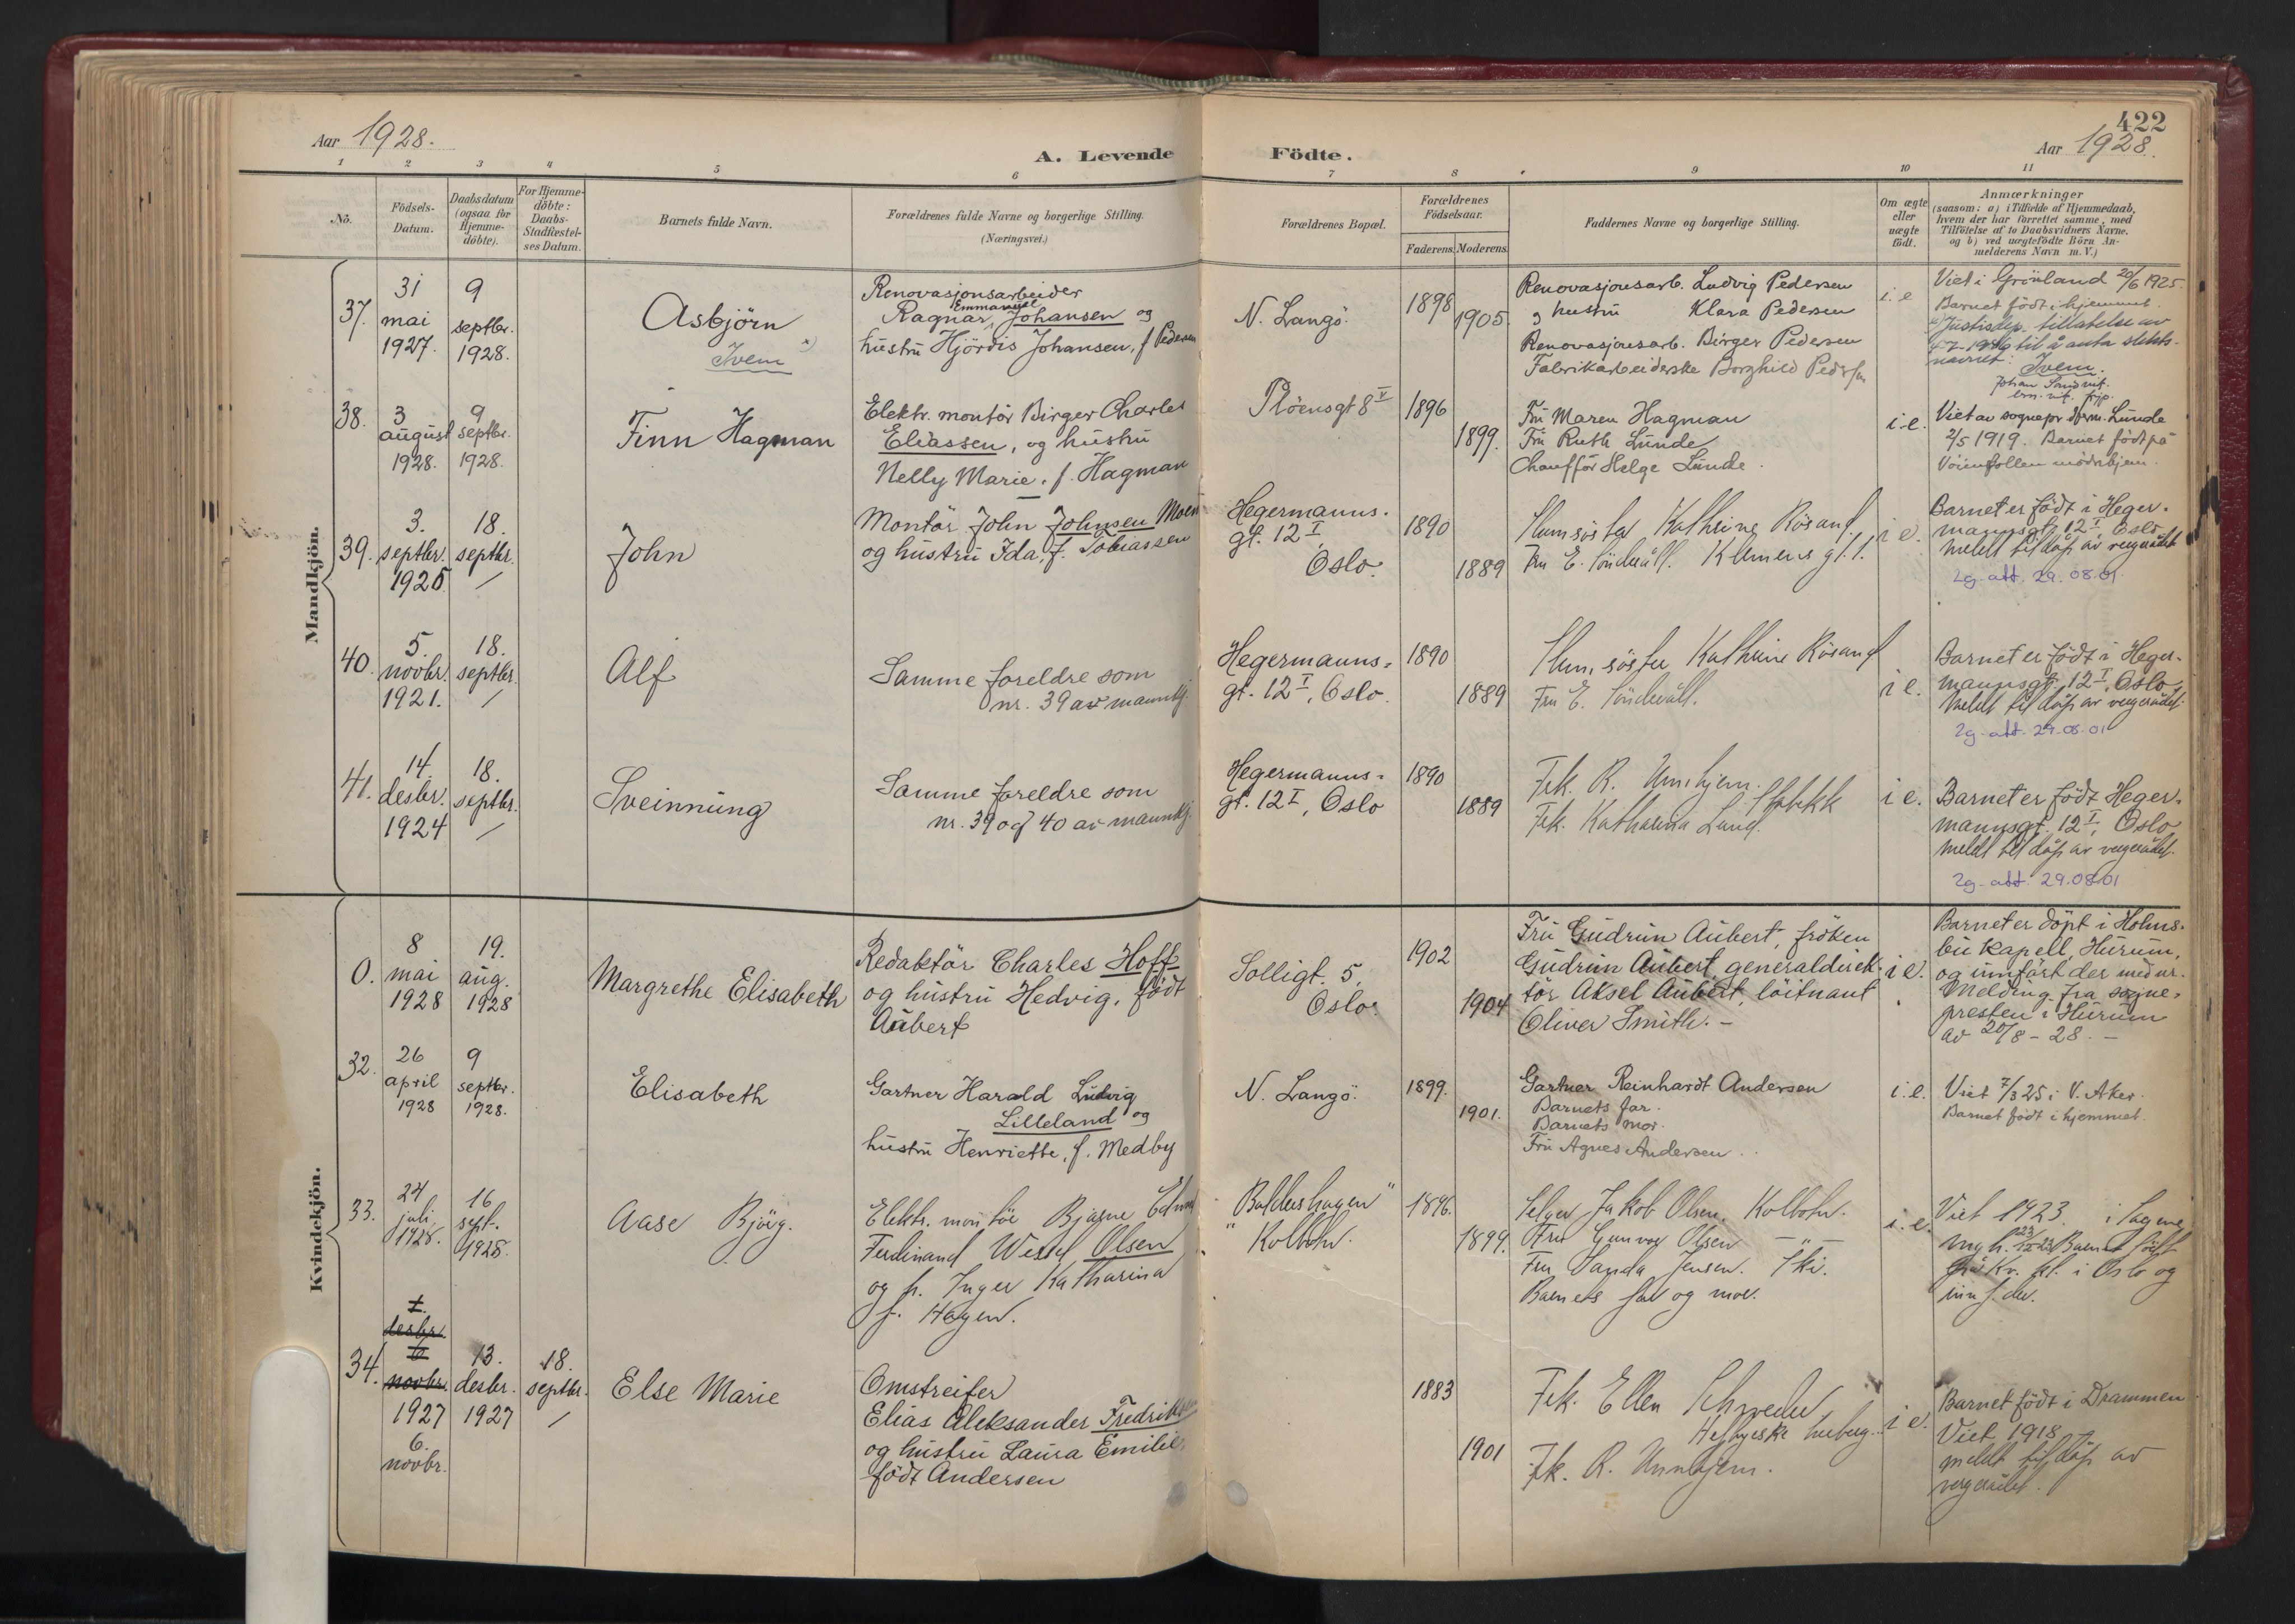 422
Aar 1928.
A. Levende Födte.
Aar 1928.
1 2 3 4 5 6 7 8 9 10 11
No.
Födsels-
Datum.
Daabsdatum
(ogsaa for
Hjemme-
döbte).
For Hjemme-
döbte:
Daabs-
Stadfæstel-
ses Datum.
Barnets fulde Navn.
Forældrenes fulde Navne og borgerlige Stilling.
(Næringsvei.)
Forældrenes Bopæl.
Forældrenes
Födselsaar.
Faderens. Moderens.
Faddernes Navne og borgerlige Stilling.
Om ægte
eller
uægte
födt.
Anmærkninger
(saasom: a) i Tilfælde af Hjemmedaab,
hvem der har forrettet samme, med
Tilföielse af to Daabsvidners Navne.
og b) ved uægtefödte Börn An-
melderens Navn m. V.)
Mandkjön.
37.
31
mai
1927.
9
septbr.
1928.
Asbjörn
Ivem x)
Renovasjonsarbeider
Emmanuel
Ragnar Johansen og
hustru Hjördis Johansen, f Pedersen
N. Langö.
1898
1905.
Renovasjonsarb. Ludvig Pedersen
og hustru Klara Pedersen
Renovasjonsarb. Birger Pedersen
Fabrikarbeiderske Borghild Pedersen
i e
Viet i Grönland 20/6 1925
Barnet födt i hjemmet.
x) Justisdep. tillatelse av
til å anta slekts-
navnet: Ivem.
38.
3
august
1928.
9
septbr.
1928.
Finn Hagman
Elektr. montör Birger Charles
Eliassen, og hustru
Nelly Marie, f. Hagman
Plöensgt 8 V
1896
1899.
Fru Maren Hagman
Fru Ruth Lunde
Chaufför Helge Lunde.
i.e.
Viet av sognepr. Herm. Lunde
2/5 1919. Barnet födt på
Voienvollen mödrehjem.
39.
3.
septbr.
1925
18.
septbr.
/
John
Montör John Johnsen Moen
og hustru Ida, f. Tobiassen
Hegermanns.
gt. 12 I,
Oslo.
1890
1889
Slumsöster Kathrine Rösand
Fru E. Klemens gt. 1.
i e.
Barnet er födt i Heger.
mannsgt. 12 I, Oslo,
meldt til dåp av vergerådet
2g. att. 29.08.01
40.
5.
novbr.
1921.
18.
septbr.
/
Alf
Samme foreldre som
nr. 39 av mannkj.
Hegermanns-
gt. 12 I, Oslo.
1890
1889
Slumsöster Kathrine Rösand
Fru E.
i e.
Barnet er födt i Heger-
mannsgt. 12 I, Oslo,
meldt til dåp av vergerådet.
2g. att. 29.08.01
41.
14.
desbr.
1924
18.
septbr.
/
Sveinnung
Samme foreldre som
nr. 39 og 40 av mannkj.
Hegermanns-
gt. 12 I, Oslo
1890
1889
Frk. R. Unnhjem.
Stabekk
Frk. Katharina Lund.
i e.
Barnet er födt Heger-
mannsgt. 12 I, Oslo
meldt til dåp av vergerådet.
2g. att. 29.08.01
Kvindekjön.
0.
8
mai
1928
19.
aug.
1928
Margrethe Elisabeth
Redaktör Charles Hoff
og hustru Hedvig, födt
Aubert
Solligt. 5,
Oslo.
1902
1904
Fru Gudrun Aubert, fröken
Gudrun Aubert, generaldirek-
tör Aksel Aubert, löitnant
Oliver Smith. -
i e.
Barnet er döpt i Holms-
bu kapell, Hurum,
og innfört der med nr.
Melding fra sogne-
presten i Hurum
av 20/8 - 28. -
32.
26
april
1928
9
septbr.
1928.
Elisabeth
Gartner Harald Ludvig
Lilleland og
hustru Henriette, f. Medby
N. Langö.
1899.
1901.
Gartner Reinhardt Andersen
Barnets far.
Barnets mor.
Fru Agnes Andersen.
i.e.
Viet 7/3 25 i V. Aker.
Barnet födt i hjemmet.
33.
24
juli
1928.
16
sept.
1928.
Aase Bjørg.
Elektr. montör Bjarne
Ferdinand Wessel Olsen
og h. Inger Katharina
f. Hagen.
"Baldershagen"
Kolbotn.
1896.
1899.
Selger Jakob Olsen. Kolbotn.
Fru Gunvor Olsen — " —
Fru Vanda Jensen. Ski.
Barnets far og mor.
i.e.
Viet 1923. i Sagene
Barnet født
på Kv. kl. i Oslo og
innf. der.
34.
1.
desbr.
6
novbr.
1927
6.
novbr.
13.
desbr.
1927
18.
septbr.
/
Else Marie
Omstreifer
Elias Aleksander Fredriksen
og hustru Laura Emilie,
födt Andersen
1883
1901
Frk. Ellen Schweder
Frk. R. Unnhjem.
i e.
Barnet födt i Drammen
Viet 1918
meldt til dåp av
vergerådet.